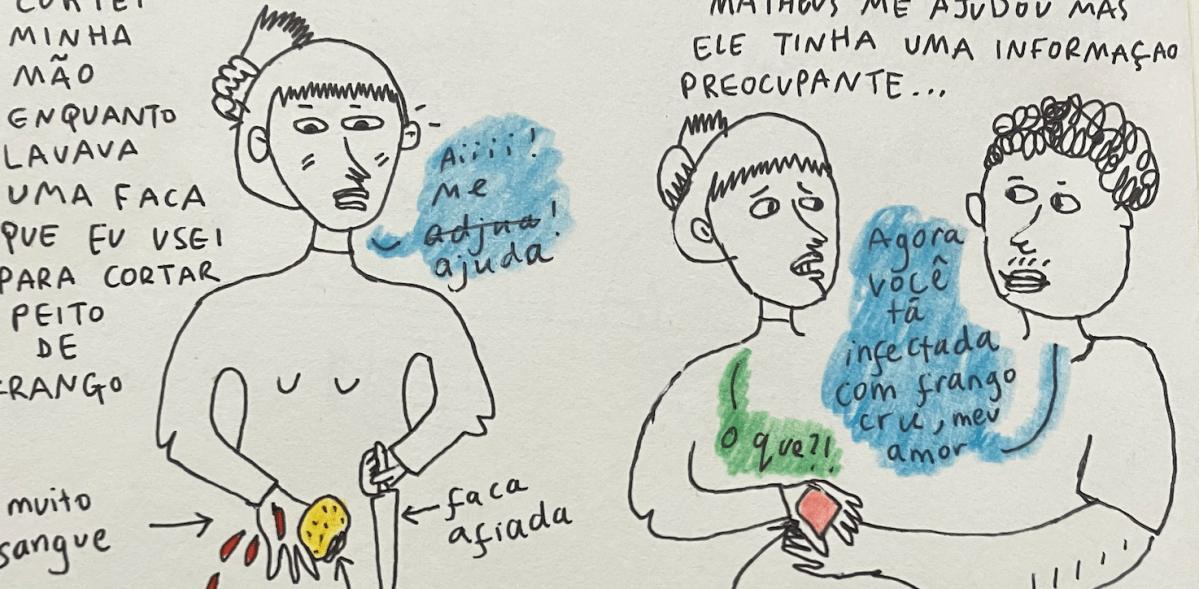 CORTEI
MINHA
MÃO
ENQUANTO
LAVAVA
UMA FACA
QUE EU USEI
PARA CORTAR
PEITO
DE
FRANGO
Aiiii!
me
adjua!
ajuda
muito
sangue
faca
afiada
MATHEUS ME AJUDOU MAS
ELE TINHA UMA INFORMAÇAO
PREOCUPANTE...
Agora
você
tã
infectada
com frango
cru, meu
amor
O que?!